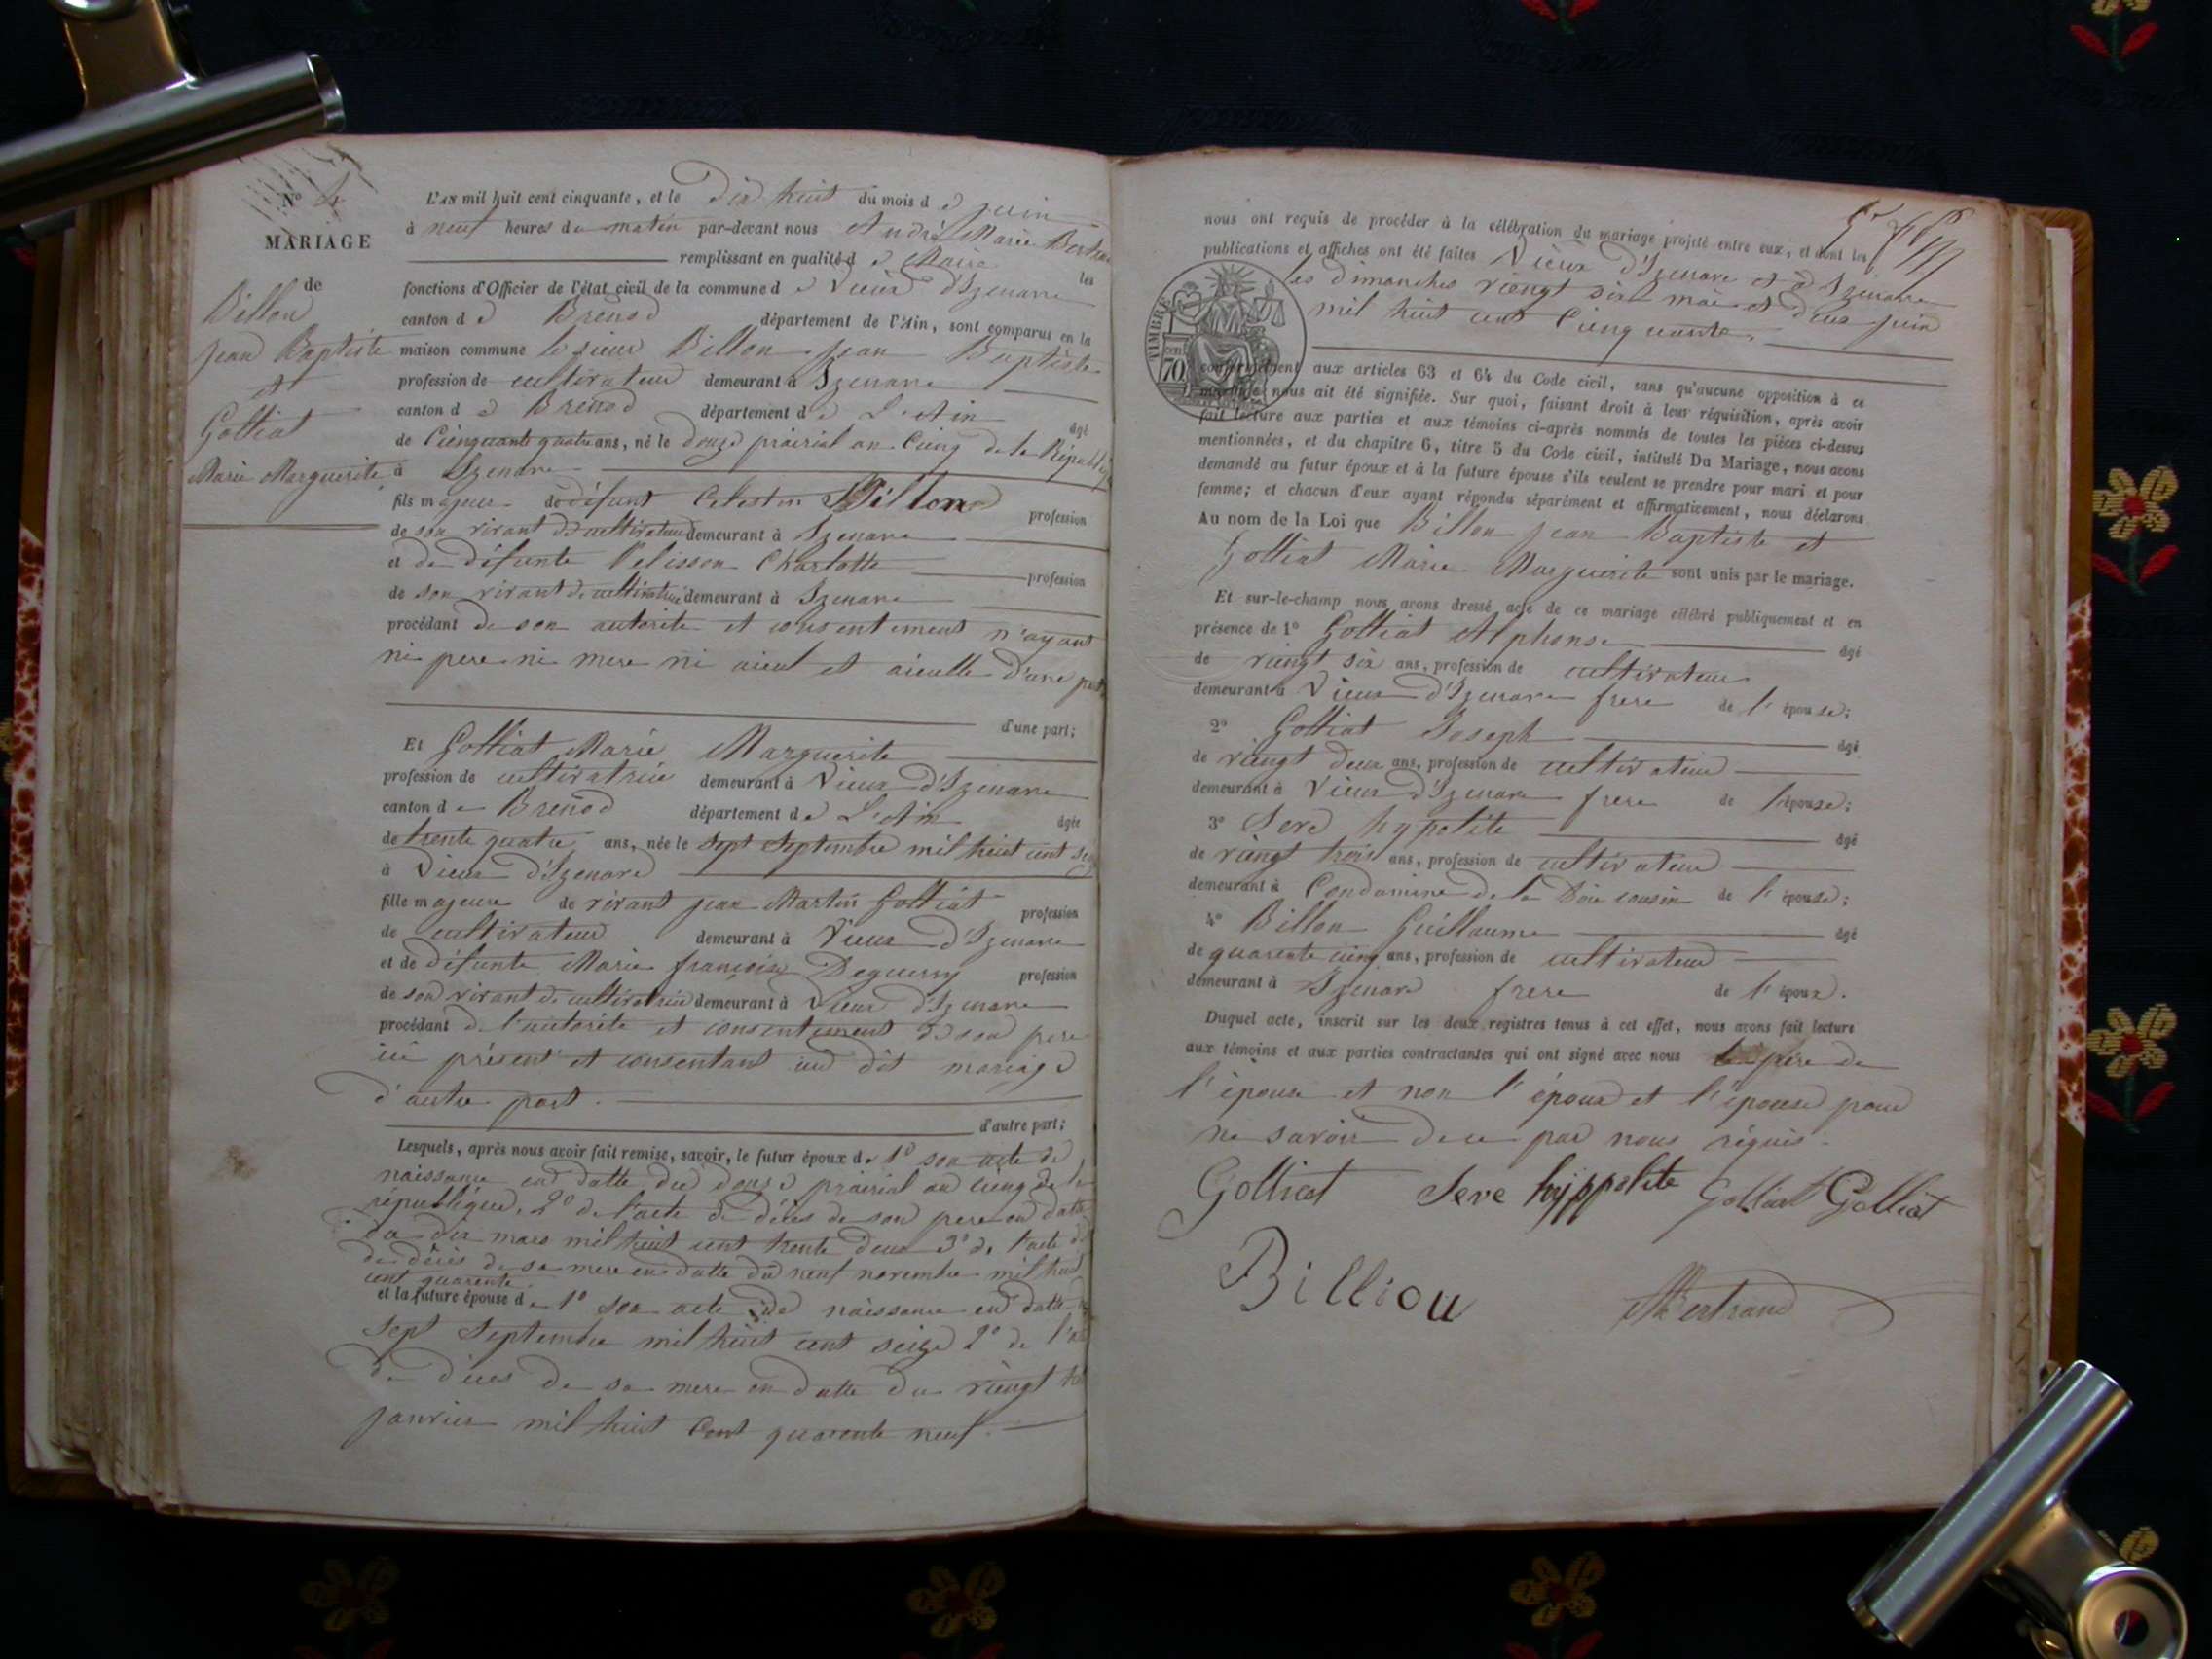 N° 4
MARIAGE
de
Billon
Jean Baptiste
et
Golliat
Marie Marguerite
L'AN mil huit cent cinquante, et le Dix huit du mois d e juin
à neuf heures du matin par-devant nous André Marie Bertrand
remplissant en qualité d e Maire les
fonctions d'Officier de l'état civil de la commune d e Vieux d'Izenave
canton d e Brenod département de l'Ain, sont comparus en la
maison commune le sieur Billon Jean Baptiste
profession de cultivateur demeurant à Izenave
canton d e Brenod département d e L'Ain âgé
de Cienquante quatre ans, né le douze prairial an Cienq de la Républiq
à Izenave
fils majeur de défunt Celestin Billon profession
de son vivant de cultivateur demeurant à Izenave
et de défunte Pelisson Charlotte profession
de son vivant de cultivatrice demeurant à Izenave
procédant de son autorité et consentement n'ayant
ni pere ni mere ni aieul et aieulle d'une part
d'une part;
Et Golliat Marie Marguerite
profession de cultivatrice demeurant à Vieux d'Izenave
canton d e Brenod département d e L'Ain âgée
de trente quatre ans, née le sept Septembre mil huit cent seize
à Vieux d'Izenave
fille majeure de vivant jean Martin Golliat profession
de cultivateur demeurant à Vieux d'Izenave
et de défunte Marie françoise Deguerry profession
de son vivant de cultivatrice demeurant à Vieux d'Izenave
procédant de l'autorité et consentement de son pere
ici présent et consentant au dit mariage
d'autre part.
d'autre part;
Lesquels, après nous avoir fait remise, savoir, le futur époux de 1° son acte de
naissance en datte du douze prairial an cienq de la
république, 2° de l'acte de décès de son pere en datte
du dix mars mil huit cent trente deux 3° de l'acte de
de décès de sa mere en datte du neuf novembre mil huit
cent quarente.
et la future épouse de 1° son acte de naissance en datte du
sept Septembre mil huit cent seize 2° de l'acte
de décès de sa mere en datte du viengt
janvier mil huit Cent quarente neuf.
nous ont requis de procéder à la célébration du mariage projeté entre eux, et dont les
publications et affiches ont été faites Vieux d'Izenave et à Izenave
les dimanches viengt six mai et deux juin
mil huit cent Cienquante.
TIMBRE
70
conformément aux articles 63 et 64 du Code civil, sans qu'aucune opposition à ce
mariage nous ait été signifiée. Sur quoi, faisant droit à leur réquisition, après avoir
fait lecture aux parties et aux témoins ci-après nommés de toutes les pièces ci-dessus
mentionnées, et du chapitre 6, titre 5 du Code civil, intitulé Du Mariage, nous avons
demandé au futur époux et à la future épouse s'ils veulent se prendre pour mari et pour
femme; et chacun d'eux ayant répondu séparément et affirmativement, nous déclarons
Au nom de la Loi que Billon jean Baptiste et
Golliat Marie Marguerite sont unis par le mariage.
Et sur-le-champ nous avons dressé acte de ce mariage célébré publiquement et en
présence de 1° Golliat Alphonse âgé
de viengt six ans, profession de cultivateur
demeurant à Vieux d'Izenave frere de l' épouse;
2° Golliat Joseph âgé
de viengt deux ans, profession de cultivateur
demeurant à Vieux d'Izenave frere de l'épouse;
3° Seve hypolite âgé
de viengt trois ans, profession de cultivateur
demeurant à Condamine de la Doie cousin de l' épouse;
4° Billon Guillaume âgé
de quarente cienq ans, profession de cultivateur
demeurant à Izenave frere de l' époux.
Duquel acte, inscrit sur les deux registres tenus à cet effet, nous avons fait lecture
aux témoins et aux parties contractantes qui ont signé avec nous le père de
l'épouse et non l'époux et l'épouse pour
ne savoir de ce par nous réquis.
Golliat Seve hyppolite Golliat Golliat
Billiou ABertrand